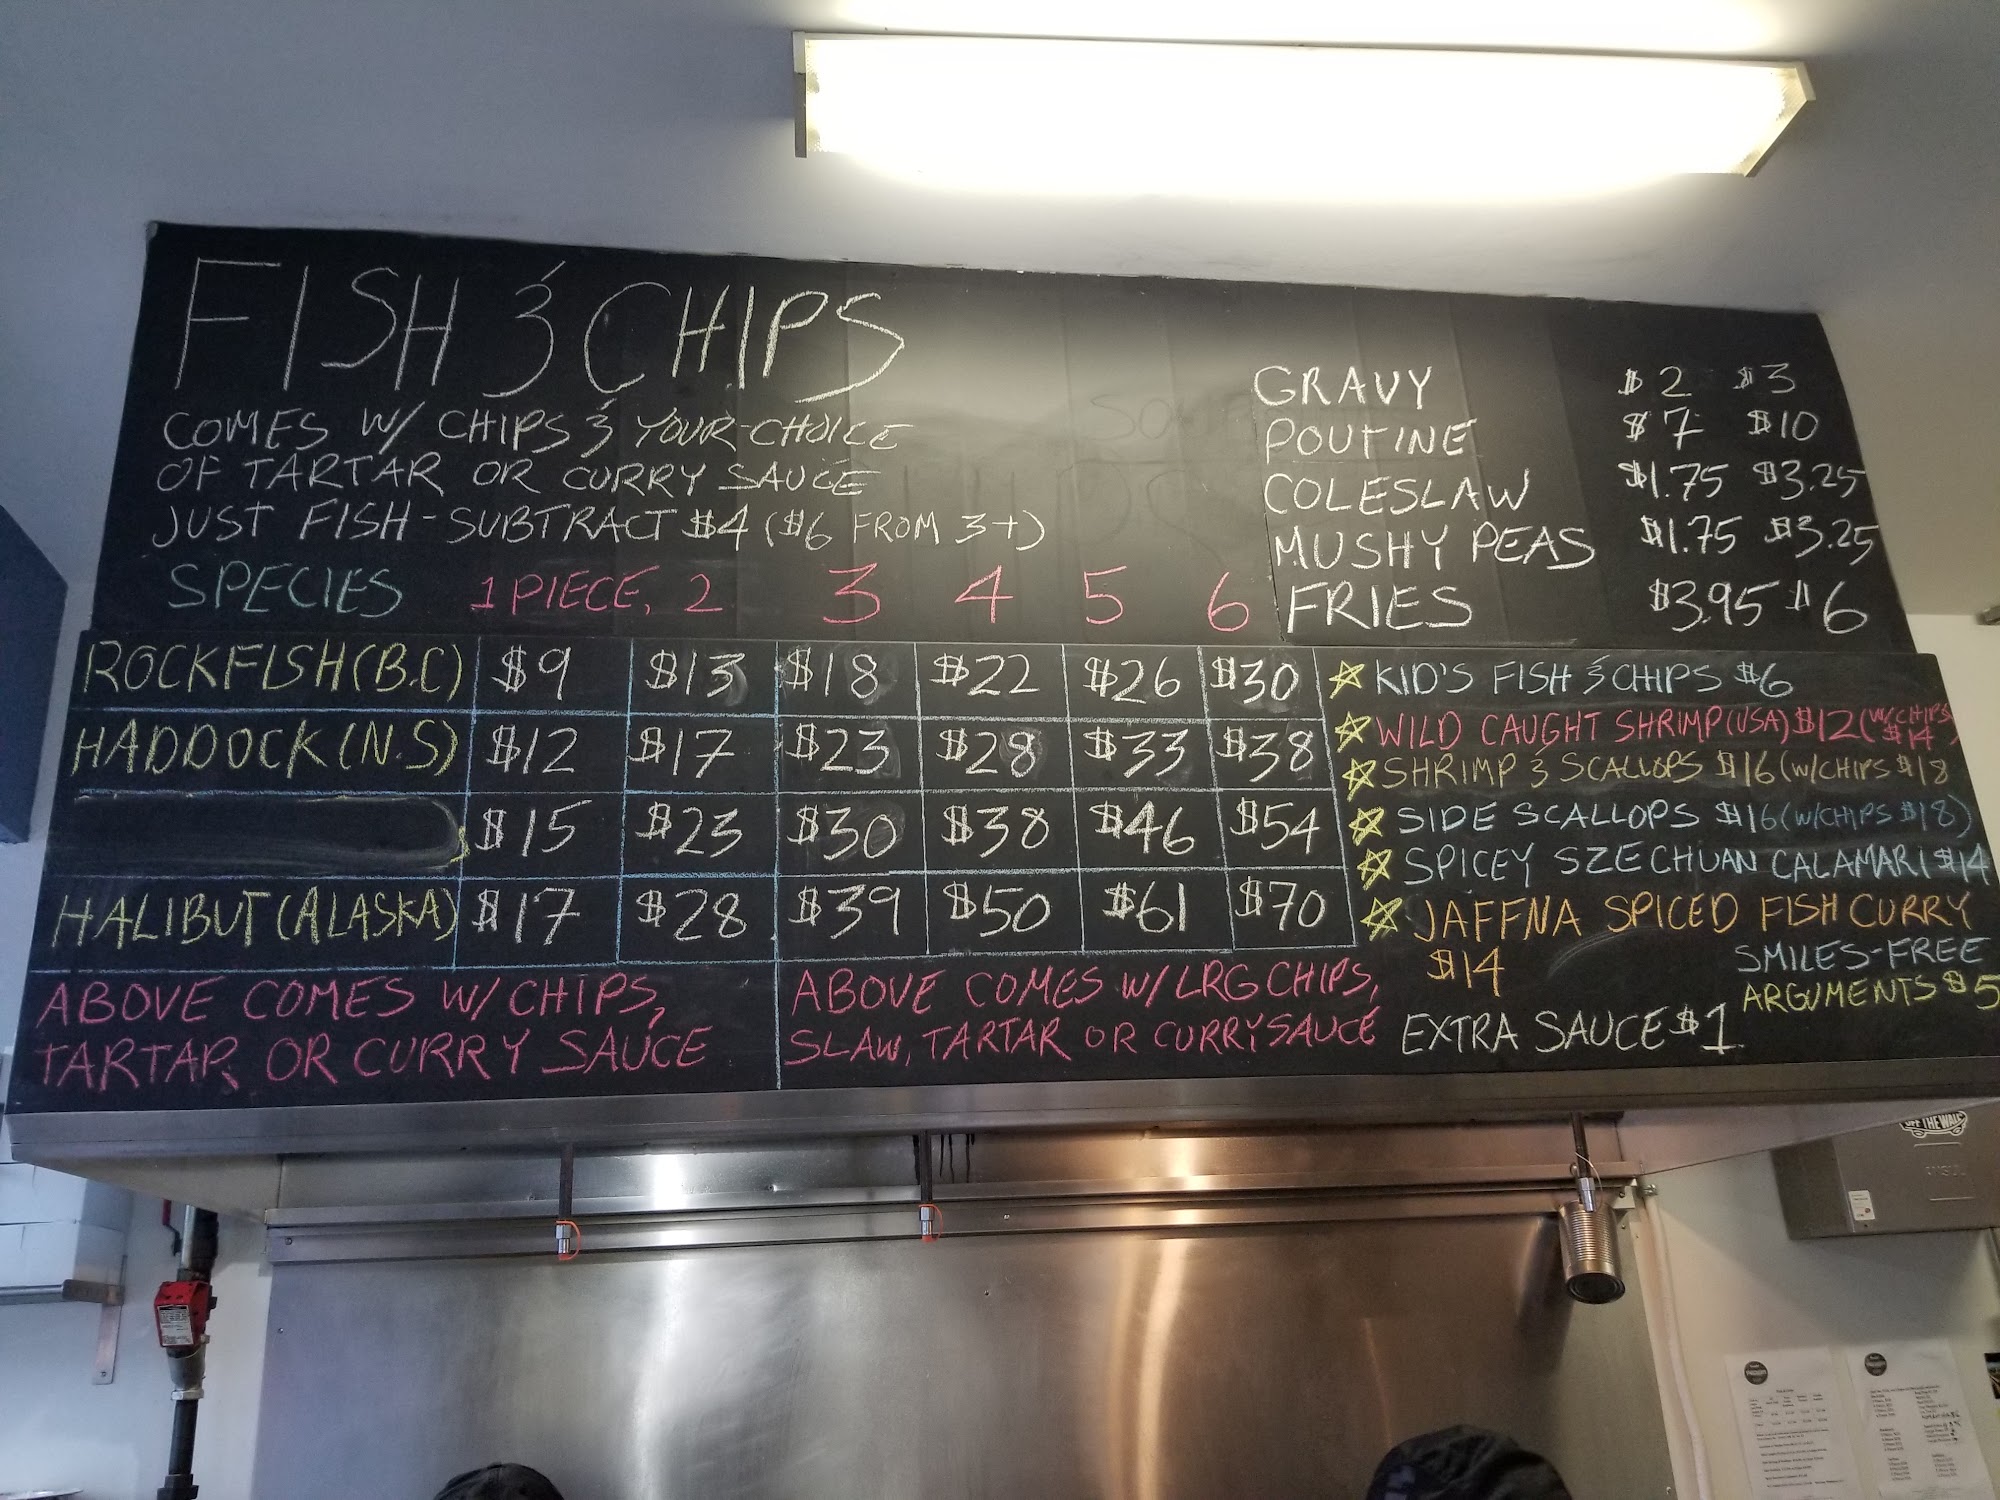 FISH & CHIPS
COMES W/ CHIPS & YOUR CHOICE
OF TARTAR OR CURRY SAUCE
JUST FISH - SUBTRACT $4 ($6 FROM 3+)
SPECIES 1 PIECE, 2 3 4 5 6
ROCKFISH (B.C) $9 $13 $18 $22 $26 $30
HADDOCK (N.S) $12 $17 $23 $28 $33 $38
$15 $23 $30 $38 $46 $54
HALIBUT (ALASKA) $17 $28 $39 $50 $61 $70
ABOVE COMES W/ CHIPS,
TARTAR OR CURRY SAUCE
ABOVE COMES W/ LRG CHIPS,
SLAW, TARTAR OR CURRY SAUCE
GRAVY $2 $3
POUTINE $7 $10
COLESLAW $1.75 $3.25
MUSHY PEAS $1.75 $3.25
FRIES $3.95 $6
KID'S FISH & CHIPS $6
WILD CAUGHT SHRIMP (USA) $12 (W/ CHIPS $14)
SHRIMP & SCALLOPS $16 (W/ CHIPS $18
SIDE SCALLOPS $16 (W/ CHIPS $18)
SPICEY SZECHUAN CALAMARI $14
JAFFNA SPICED FISH CURRY
$14
SMILES-FREE
ARGUMENTS $5
EXTRA SAUCE $1
OFF THE WALL
ANSUL